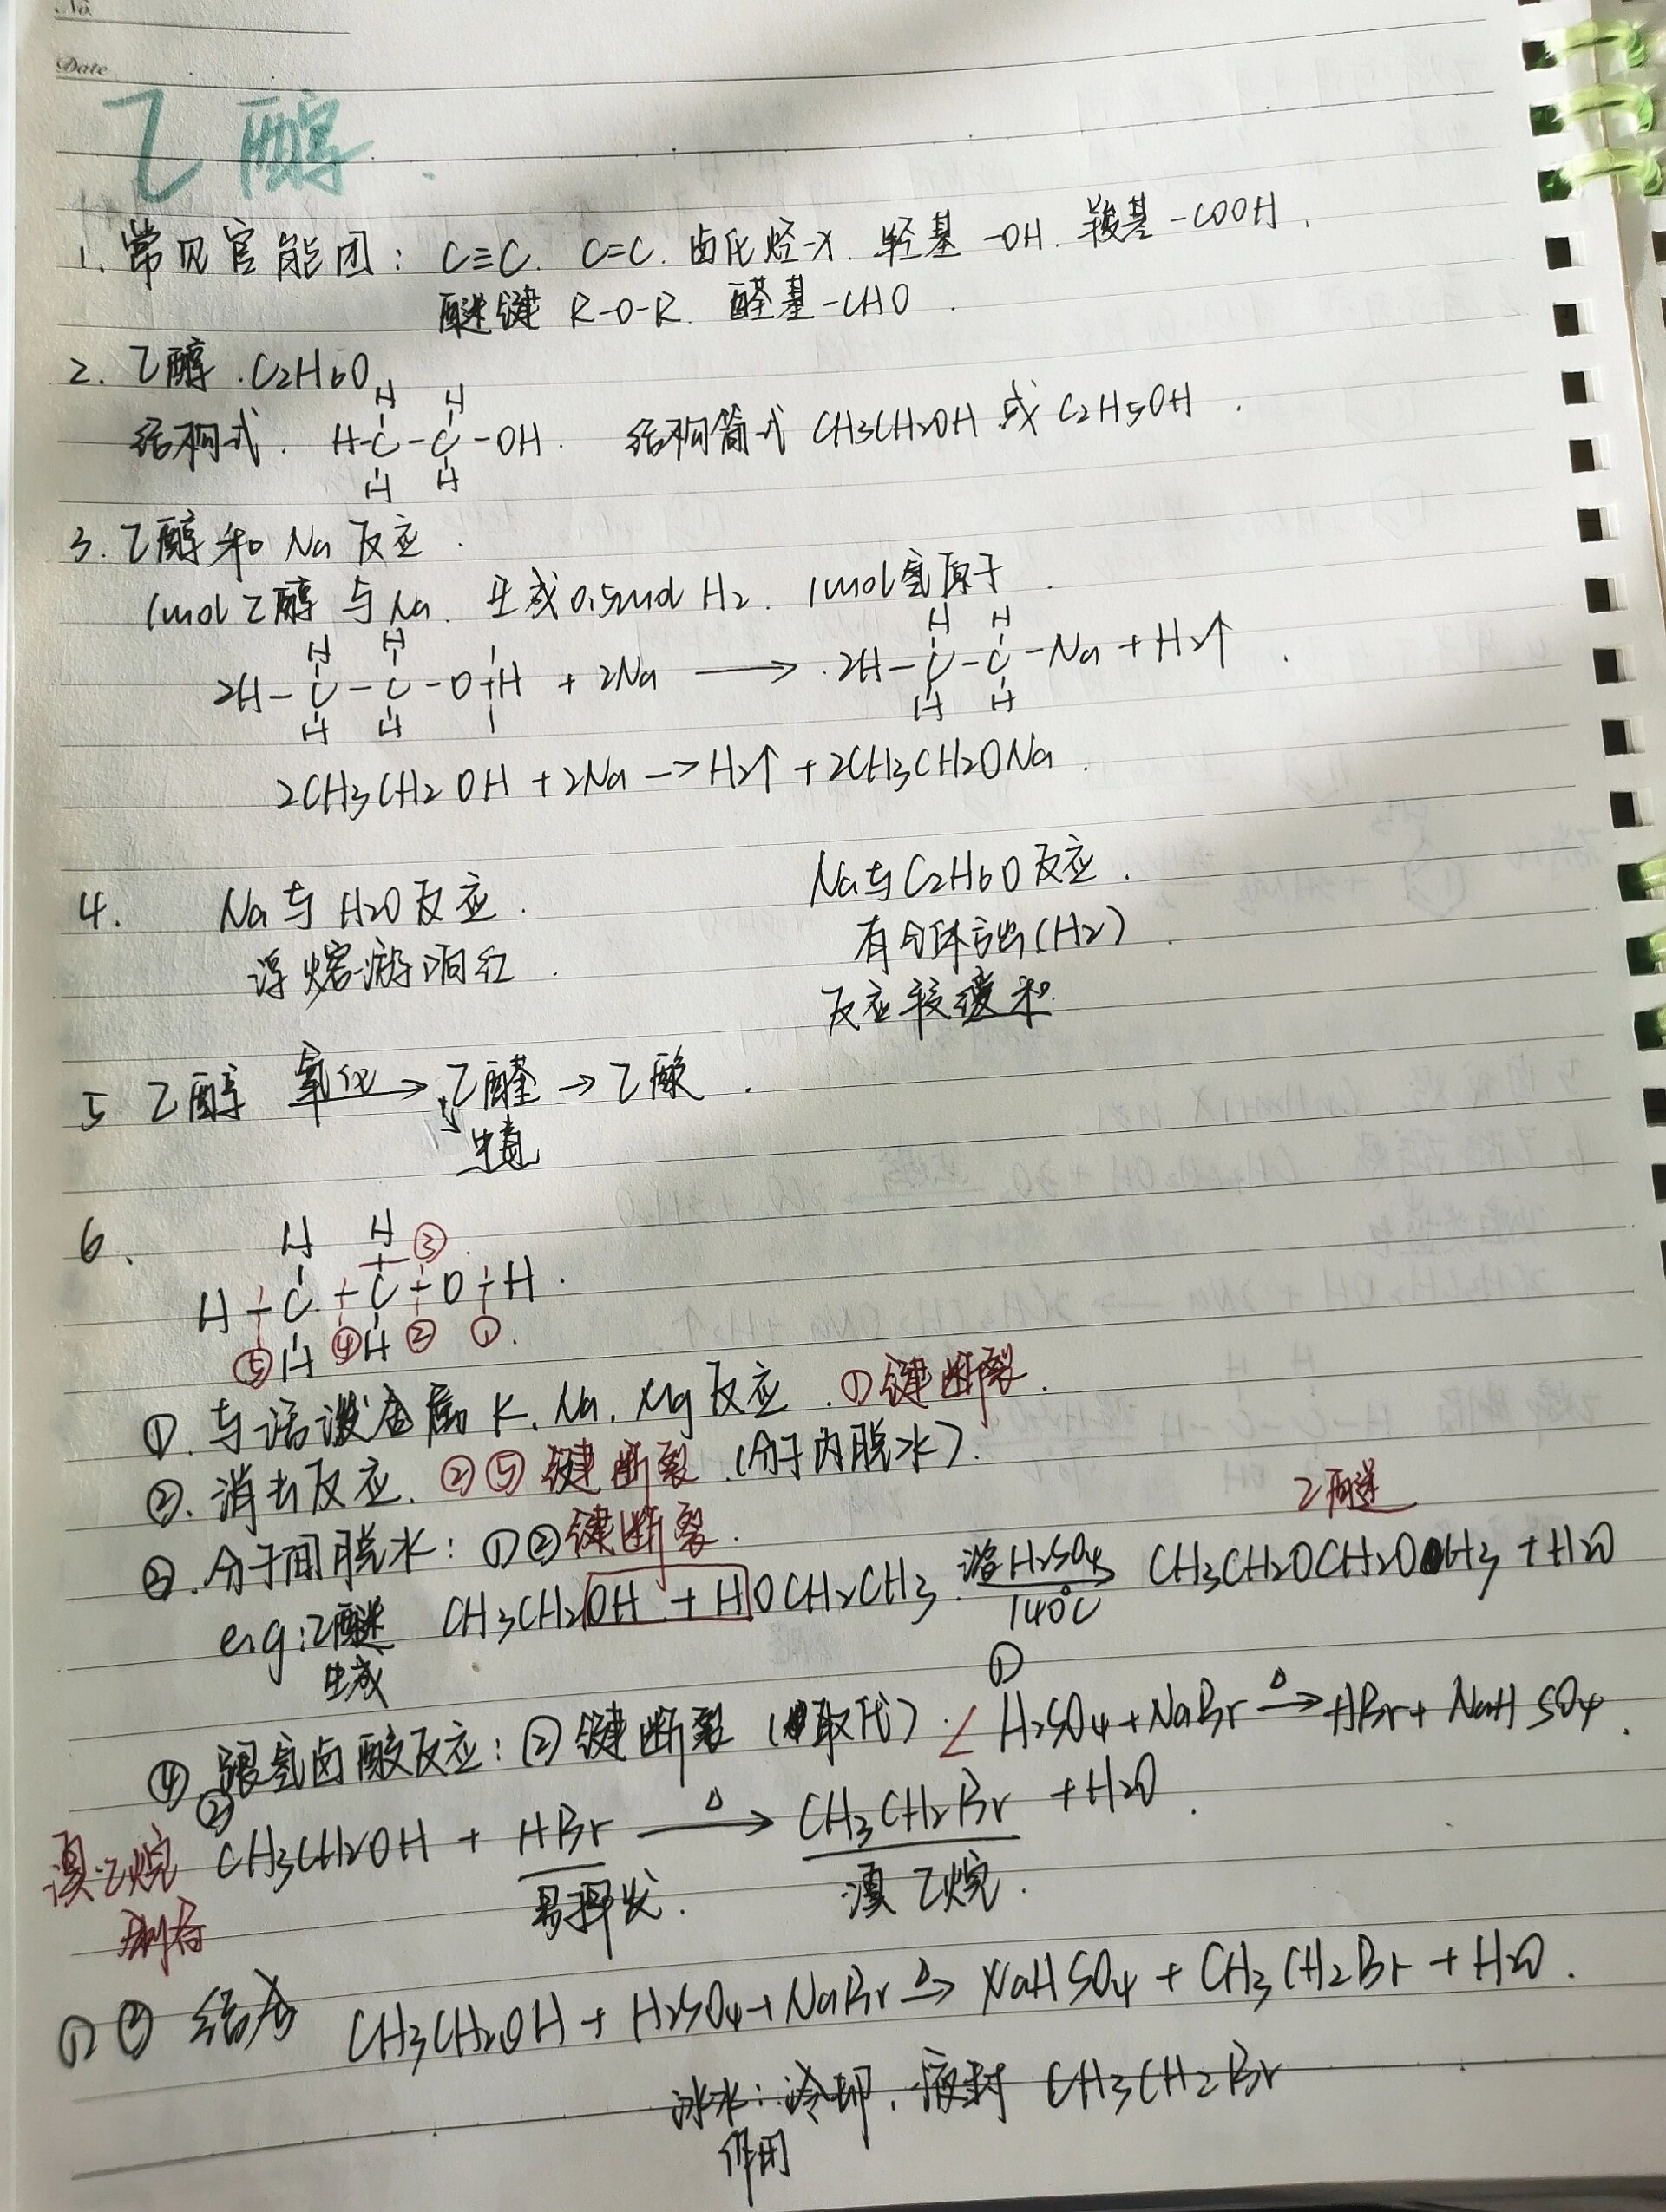 No.
Date
乙醇.
1. 常见官能团: C≡C. C=C. 卤代烃-X. 羟基 -OH. 羧基 -COOH.
醚键 R-O-R. 醛基 -CHO.
2. 乙醇. C2H6O
H H
结构式. H-C-C-OH. 结构简式 CH3CH2OH 或 C2H5OH.
H H
3. 乙醇和 Na 反应.
1mol乙醇 与 Na. 生成0.5mol H2. 1mol氢原子.
H H H H
2H-C-C-O-H + 2Na → 2H-C-C-Na + H2↑.
H H H H
2CH3CH2OH + 2Na → H2↑ + 2CH3CH2ONa.
4. Na与 H2O 反应. Na与C2H6O反应.
浮熔游响红. 有气体产出(H2).
反应较缓和.
5 乙醇 氧化→ 乙醛 → 乙酸.
中毒
6、 H H ③
H-C-C-O-H.
⑤ H ④ H ② ①.
①. 与活泼金属 K, Na, Mg反应. ①键断裂.
②. 消去反应. ②⑤键断裂. (分子内脱水).
③. 分子间脱水: ①②键断裂.
乙醚
e.g: 乙醚 CH3CH2OH + HOCH2CH3 浓H2SO4 140℃ CH3CH2OCH2OCH3 + H2O
生成
④ 跟氢卤酸反应: ②键断裂 (取代). ① H2SO4 + NaBr △→ HBr + NaHSO4.
② CH3CH2OH + HBr △→ CH3CH2Br + H2O.
溴乙烷
制备
易挥发. 溴乙烷.
①② 结合 CH3CH2OH + H2SO4 + NaBr △→ NaHSO4 + CH3CH2Br + H2O.
冰水: 冷却. 液封 CH3CH2Br
作用